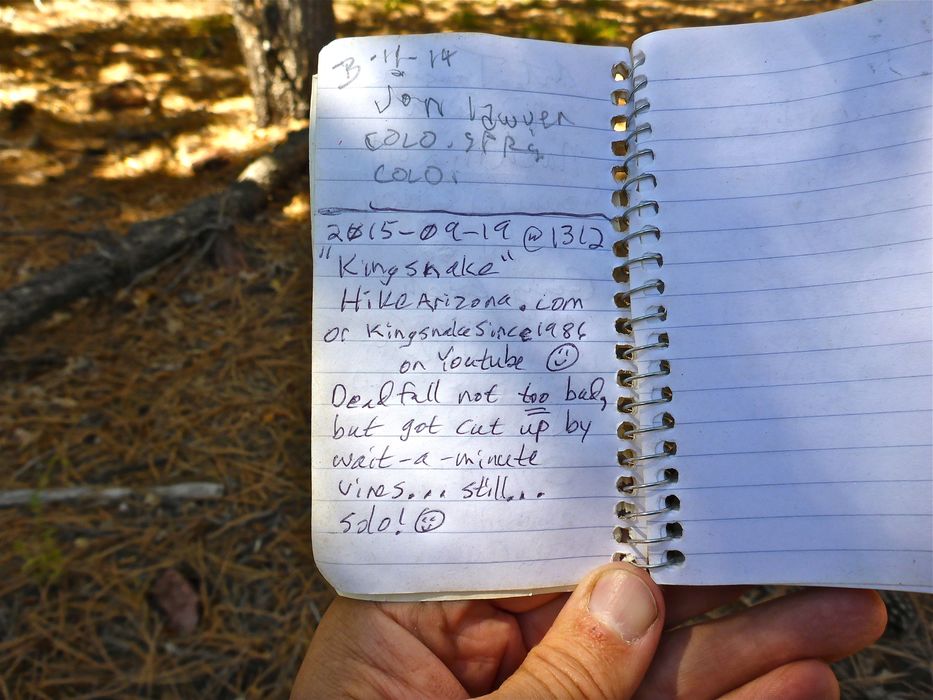 B-11-14
Jon Lawyer
COLO. SPRg
COLO.
2015-09-19 @ 1312
"Kingsnake"
HikeArizona.com
or KingsnakeSince1986
on Youtube ☺
Deadfall not too bad,
but got cut up by
wait-a-minute
vines... still...
solo! ☺